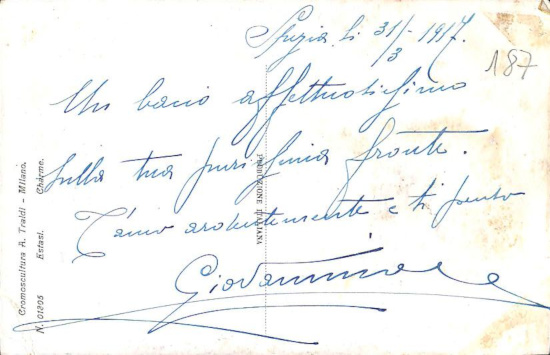 Spezia, li 31/3 - 1917.
187
Un bacio affettuosissimo
sulla tua purissima fronte.
T'amo ardentemente e ti penso
Giovannino
PRODUZIONE ITALIANA
Cromoscultura A. Traldi - Milano.
N. 01305 Estasi. Charme.